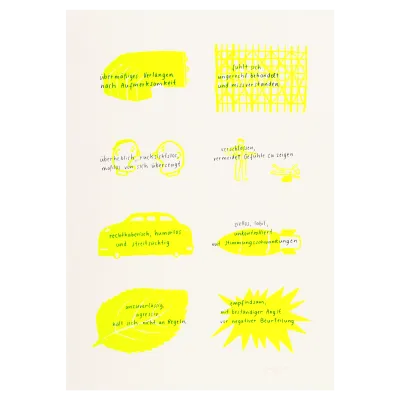 übermäßiges Verlangen
nach Aufmerksamkeit
fühlt sich
ungerecht behandelt
und missverstanden
überheblich, rücksichtslos,
maßlos von sich überzeugt
verschlossen,
vermeidet Gefühle zu zeigen
rechthaberisch, humorlos
und streitsüchtig
labil,
unbekümmert
mit Stimmungsschwankungen
unzuverlässig,
agressiv
hält sich nicht an Regeln
empfindsam,
mit beständiger Angst
vor negativer Beurteilung